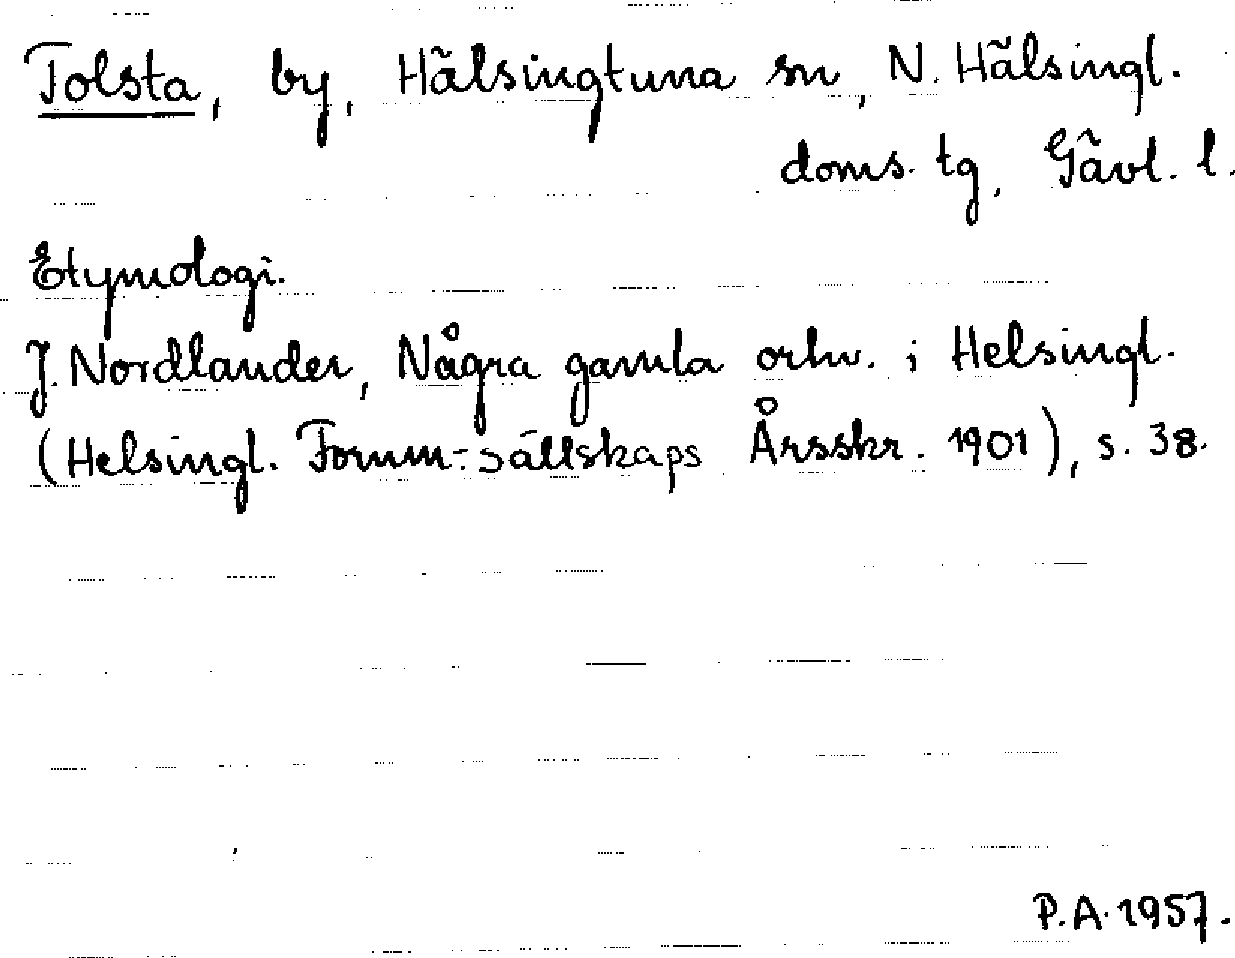 Tolsta, by, Hälsingtuna sn, N. Hälsingl.
doms. tg, Gävl. l.
Etymologi.
J. Nordlander, Några gamla ortn. i Helsingl.
(Helsingl. Fornm.-sällskaps Årsskr. 1901), s. 38.
P.A. 1957.